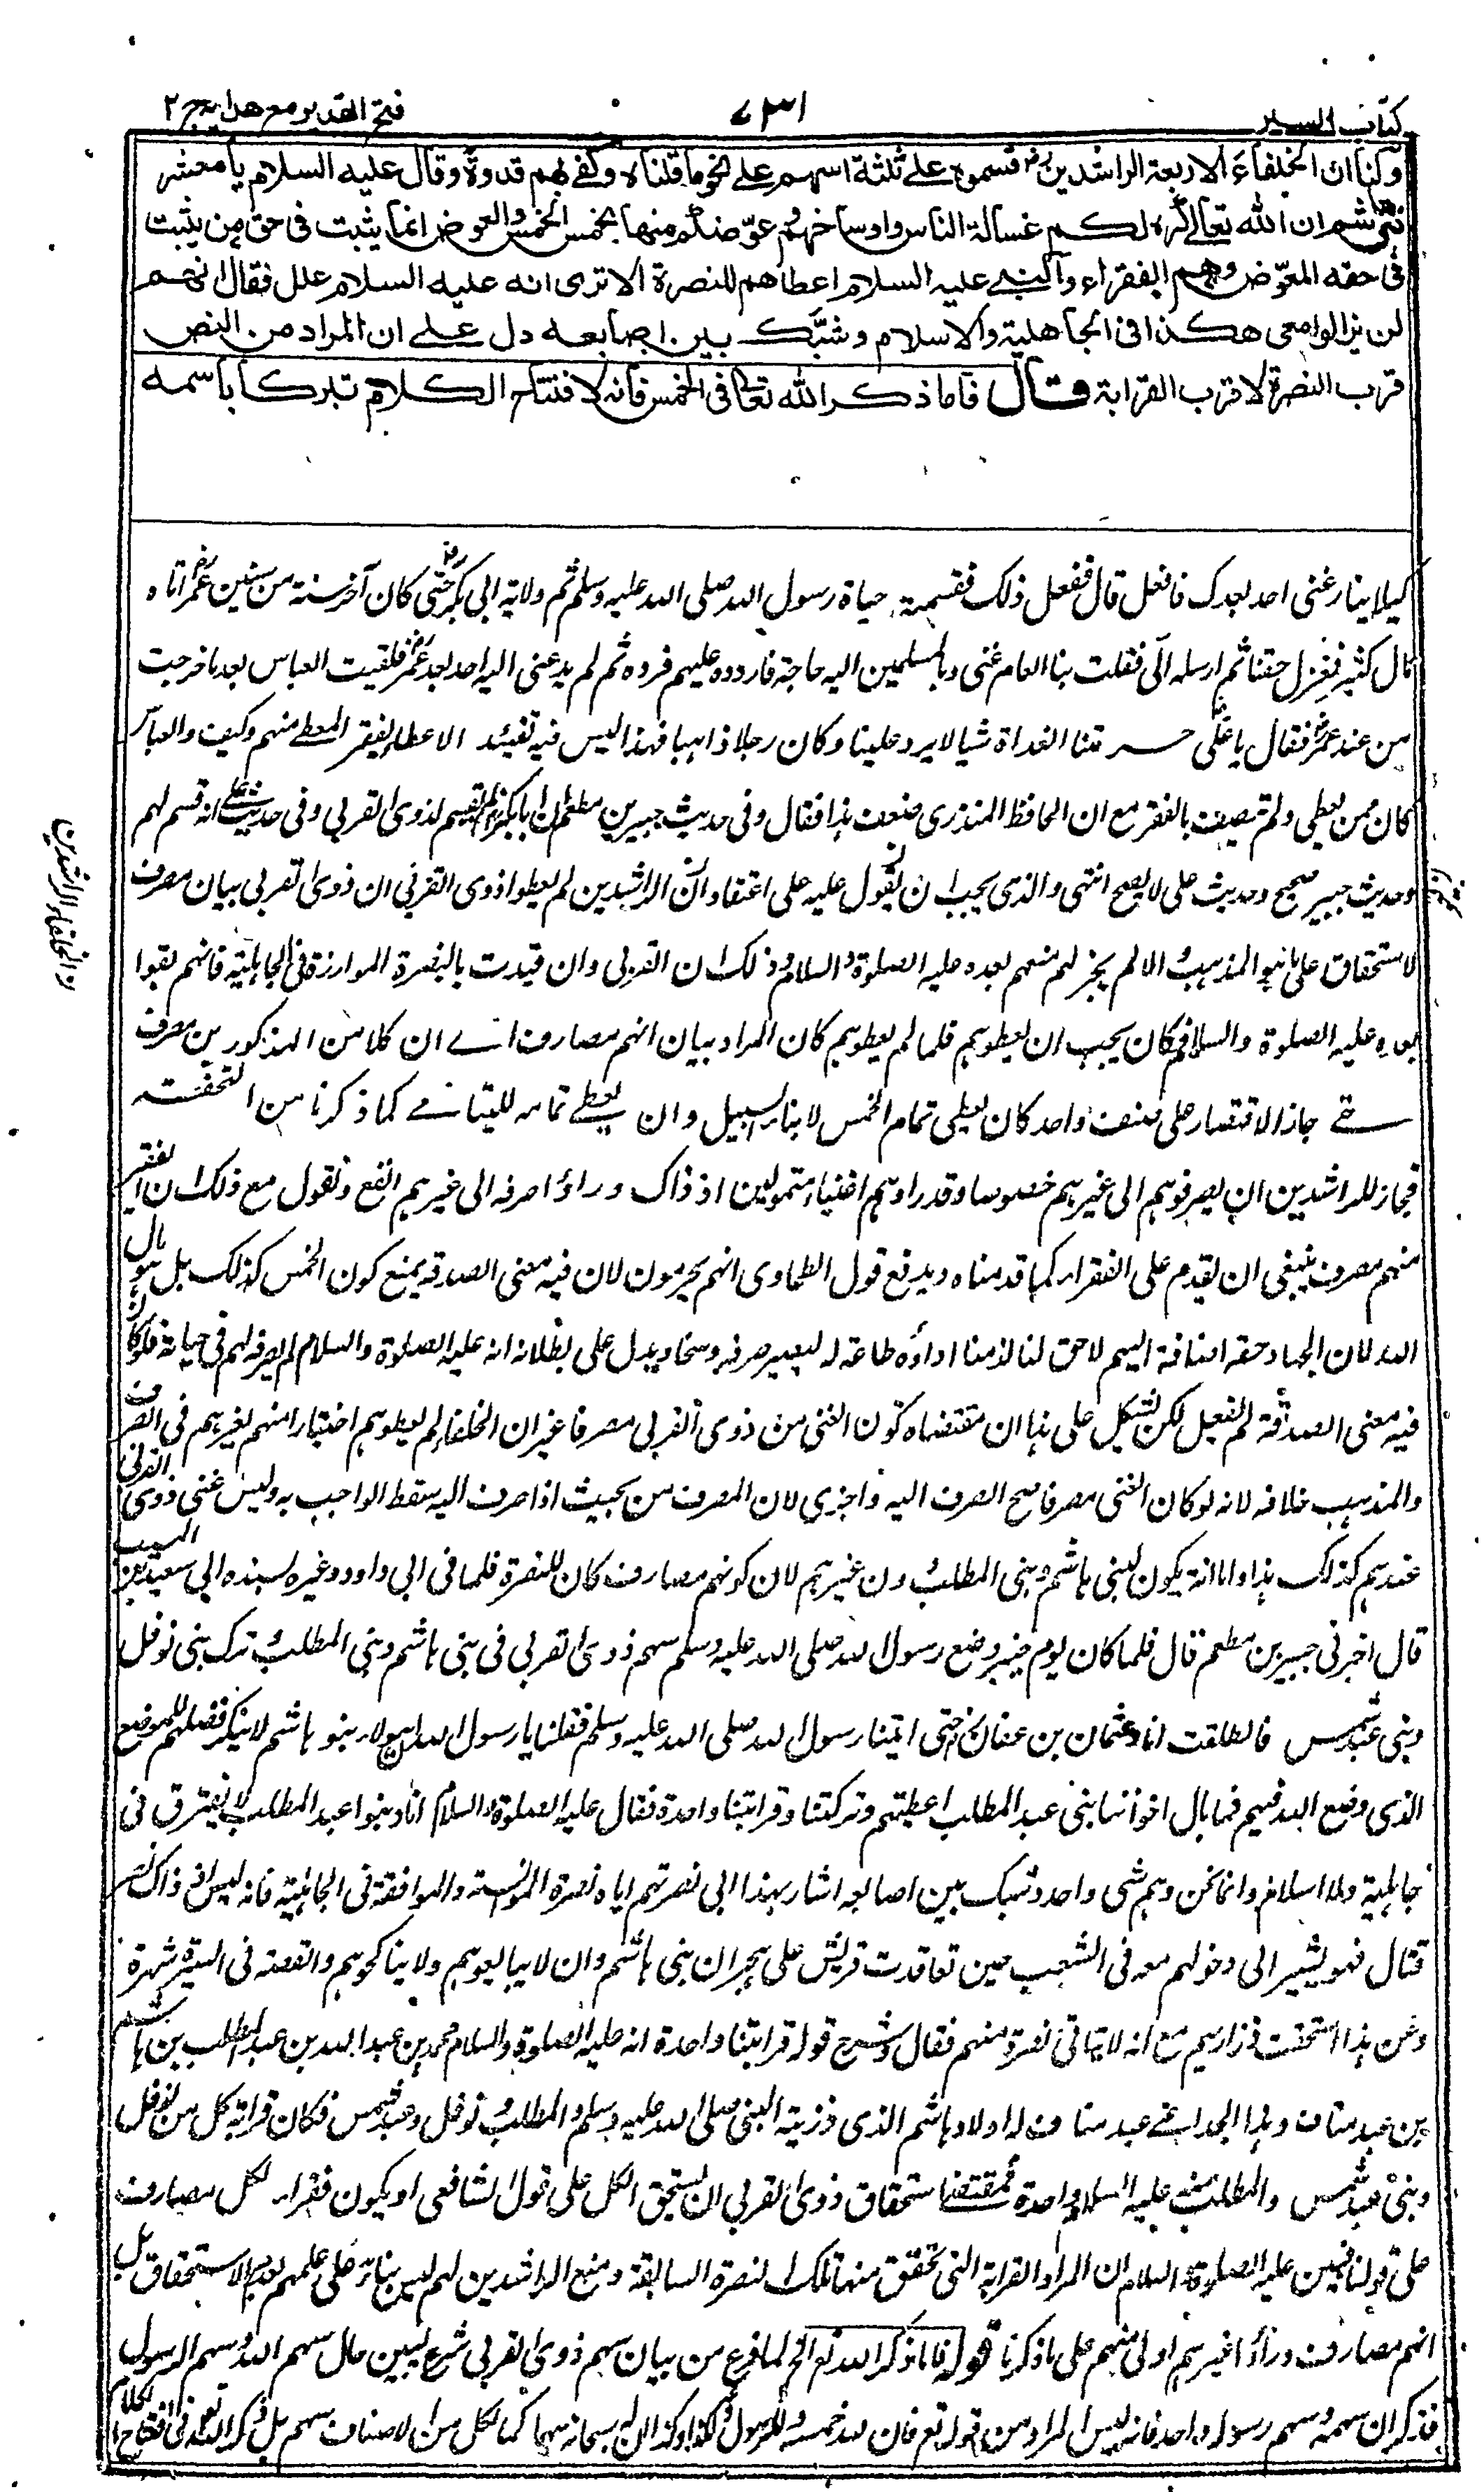 كتاب السير
٧٣١
فتح القدير مع هداية ج ٢
ولنا ان الخلفاء الاربعة الراشدين رض قسموه على ثلثة اسهم على نحو ما قلناه وكفى بهم قدوة وقال عليه السلام يا معشر
بني هاشم ان الله تعالى كره لكم غسالة الناس واوساخهم وعوضكم منها بخمس الخمس والعوض انما يثبت في حق من يثبت
في حقه المعوض وهم الفقراء والنبي عليه السلام اعطاهم للنصرة الا ترى انه عليه السلام علل فقال انهم
لن يزالوا معي هكذا في الجاهلية والاسلام وشبك بين اصابعه دل على ان المراد من النص
قرب النصرة لا قرب القرابة قال فاما ذكر الله تعالى في الخمس فانه لافتتاح الكلام تبركا باسمه
كيلا ينازعني احد بعدك فافعل قال ففعل ذلك فقسمته حياة رسول الله صلى الله عليه وسلم ثم ولاية ابي بكر رض حتى كان آخر سنة من سنين عمر رض اتاه
مال كثير فعزل حقنا ثم ارسله الي فقلت بنا العام غنى وبالمسلمين اليه حاجة فاردده عليهم فرده ثم لم يدعني اليه احد بعد عمر رض فلقيت العباس بعد ما خرجت
من عند عمر فقال يا علي حرمتنا الغداة شيا لا يرد علينا وكان رجلا داهيا فهذا ليس فيه تقييد الاعطاء بفقر المعطى منهم وكيف والعباس
كان ممن يعطى ولم يتصف بالفقر مع ان الحافظ المنذري ضعف هذا فقال وفي حديث جبير بن مطعم ان ابا بكر رض لم يقسم لذوي القربى وفي حديث علي انه قسم لهم
وحديث جبير صحيح وحديث علي لا يصح انتهى والذي يجب ان يعول عليه على اعتقاد ان الراشدين لم يعطوا ذوي القربى ان ذوي القربى بيان مصرف
لاستحقاق على ما هو المذهب والا لم يجز لهم منعهم بعده عليه الصلوة والسلام وذلك ان القربى وان قيدت بالنصرة الموازرة في الجاهلية فانهم بقوا
بعده عليه الصلوة والسلام فكان يجب ان يعطوهم فلما لم يعطوهم كان المراد بيان انهم مصارف اي ان كلا من المذكورين مصرف
حتى جاز الاقتصار على صنف واحد كان يعطى تمام الخمس لابناء السبيل وان يعطى تمامه لليتامى كما ذكرنا من التحفة
فجاز للراشدين ان يصرفوه الى غيرهم خصوصا وقد راوهم اغنياء متمولين اذ ذاك وراوا صرفه الى غيرهم انفع ونقول مع ذلك ان الفقير
منهم مصرف ينبغي ان يقدم على الفقراء كما قدمناه ويدفع قول الطحاوي انهم يحرمون لان فيه معنى الصدقة يمنع كون الخمس كذلك بل هو مال
الله لان الجهاد حقه اضافة اليهم لا حق لنا لزمنا اداؤه طاعة له ليصير صرفه وسخا ويدل على بطلانه انه عليه الصلوة والسلام لم يصرفه لهم في حياته فلو كان
فيه معنى الصدقة لم يفعل لكن يشكل على هذا ان مقتضاه كون الغني من ذوي القربى مصرفا غير ان الخلفاء لم يعطوهم اختيارا منهم لغيرهم في الصرف
والمذهب خلافه لانه لو كان الغني مصرفا صح الصرف اليه واجزى لان المصرف من بحيث اذا صرف اليه سقط الواجب به وليس غني ذوي القربى
عندهم كذلك هذا واما انه يكون لبني هاشم وبني المطلب دون غيرهم لان كونهم مصارف كان للنصرة فلما في ابي داود وغيره بسنده الى سعيد بن المسيب
قال اخبرني جبير بن مطعم قال فلما كان يوم خيبر وضع رسول الله صلى الله عليه وسلم سهم ذوي القربى في بني هاشم وبني المطلب وترك بني نوفل
وبني عبد شمس فانطلقت انا وعثمان بن عفان رض حتى اتينا رسول الله صلى الله عليه وسلم فقلنا يا رسول الله هؤلاء بنو هاشم لا ينكر فضلهم للموضع
الذي وضع الله فيهم فما بال اخواننا بني عبد المطلب اعطيتهم وتركتنا وقرابتنا واحدة فقال عليه الصلوة والسلام انا وبنو عبد المطلب لا نفترق في
جاهلية ولا اسلام وانما نحن وهم شي واحد وشبك بين اصابعه اشار بهذا الى نصرتهم اياه نصرة المؤانسة والموافقة في الجاهلية فانه ليس اذ ذاك نصر
قتال فهو يشير الى دخولهم معه في الشعب حين تعاقدت قريش على هجران بني هاشم وان لا يبايعوهم ولا يناكحوهم والقصة في السيرة شهيرة
وعن هذا استحقت ذراريهم مع انه لا يتاتى نصرة منهم فقال وشرح قوله قرابتنا واحدة انه عليه الصلوة والسلام محمد بن عبد الله بن عبد المطلب بن هاشم
بن عبد مناف وهذا الجد اعني عبد مناف له اولاد هاشم الذي ذريته النبي صلى الله عليه وسلم والمطلب ونوفل وعبد شمس فكان قرابة كل من نوفل
وبني عبد شمس والمطلب منه عليه السلام واحدة فمقتضى استحقاق ذوي القربى ان يستحق الكل على قول الشافعي او يكون فقراء الكل مصارف
على قولنا فبين عليه الصلوة والسلام ان المراد القرابة التي تحقق منها تلك النصرة السابقة ومنع الراشدين لهم ليس بناء على علمهم بعدم الاستحقاق بل
انهم مصارف وراوا غيرهم اولى منهم على ما ذكرنا قوله فاما ذكر الله تع الخ لما فرغ من بيان سهم ذوي القربى شرع يبين حال سهم الله وسهم الرسول
فذكر ان سهمه وسهم رسوله واحد فانه ليس المراد من قوله تع فان لله خمسه وللرسول ولكذا وكذا ان له سبحانه سهما كما لكل من الاصناف سهم بل ذكر الله تع في افتتاح الكلام
ن والخلفاء الراشدين